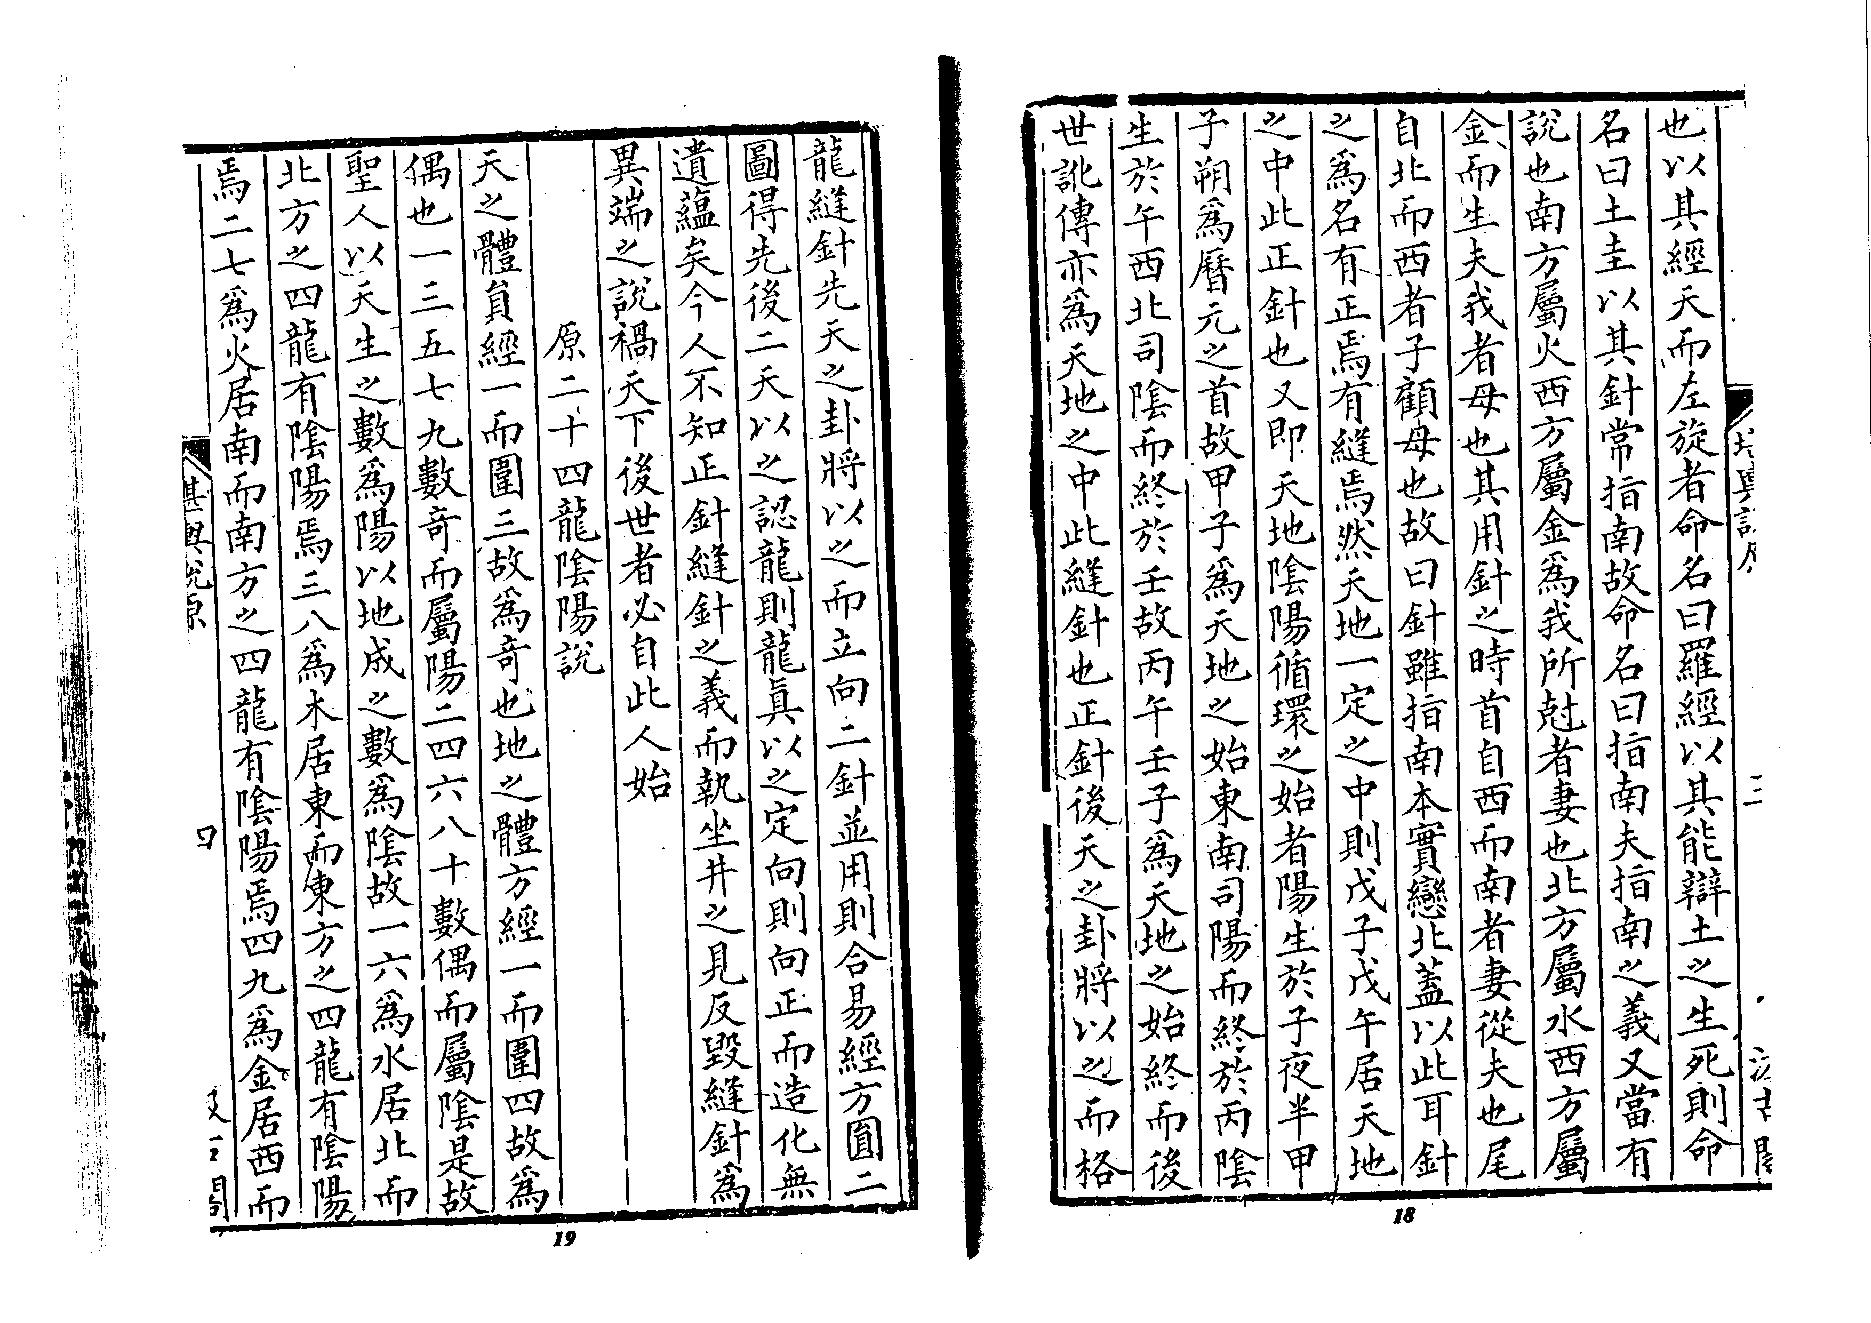 也以其經天而左旋者命名曰羅經以其能辯土之生死則命
名曰土圭以其針常指南故命名曰指南夫指南之義又當有
說也南方屬火西方屬金為我所尅者妻也北方屬水西方屬
金而生夫我者母也其用針之時首自西而南者妻從夫也尾
自北而西者子顧母也故曰針雖指南本實戀北蓋以此耳針
之為名有正焉有縫焉然天地一定之中則戊子戊午居天地
之中此正針也又即天地陰陽循環之始者陽生於子夜半甲
子朔為曆元之首故甲子為天地之始東南司陽而終於丙陰
生於午西北司陰而終於壬故丙午壬子為天地之始終而後
世訛傳亦為天地之中此縫針也正針後天之卦將以之而格
18
龍縫針先天之卦將以之而立向二針並用則合易經方圓二
圖得先後二天以之認龍則龍真以之定向則向正而造化無
遺蘊矣今人不知正針縫針之義而執坐井之見反毀縫針為
異端之說禍天下後世者必自此人始
原二十四龍陰陽說
天之體員經一而圍三故為奇也地之體方經一而圍四故為
偶也一三五七九數奇而屬陽二四六八十數偶而屬陰是故
聖人以天生之數為陽以地成之數為陰故一六為水居北而
北方之四龍有陰陽焉三八為木居東而東方之四龍有陰陽
焉二七為火居南而南方之四龍有陰陽焉四九為金居西而
四
19